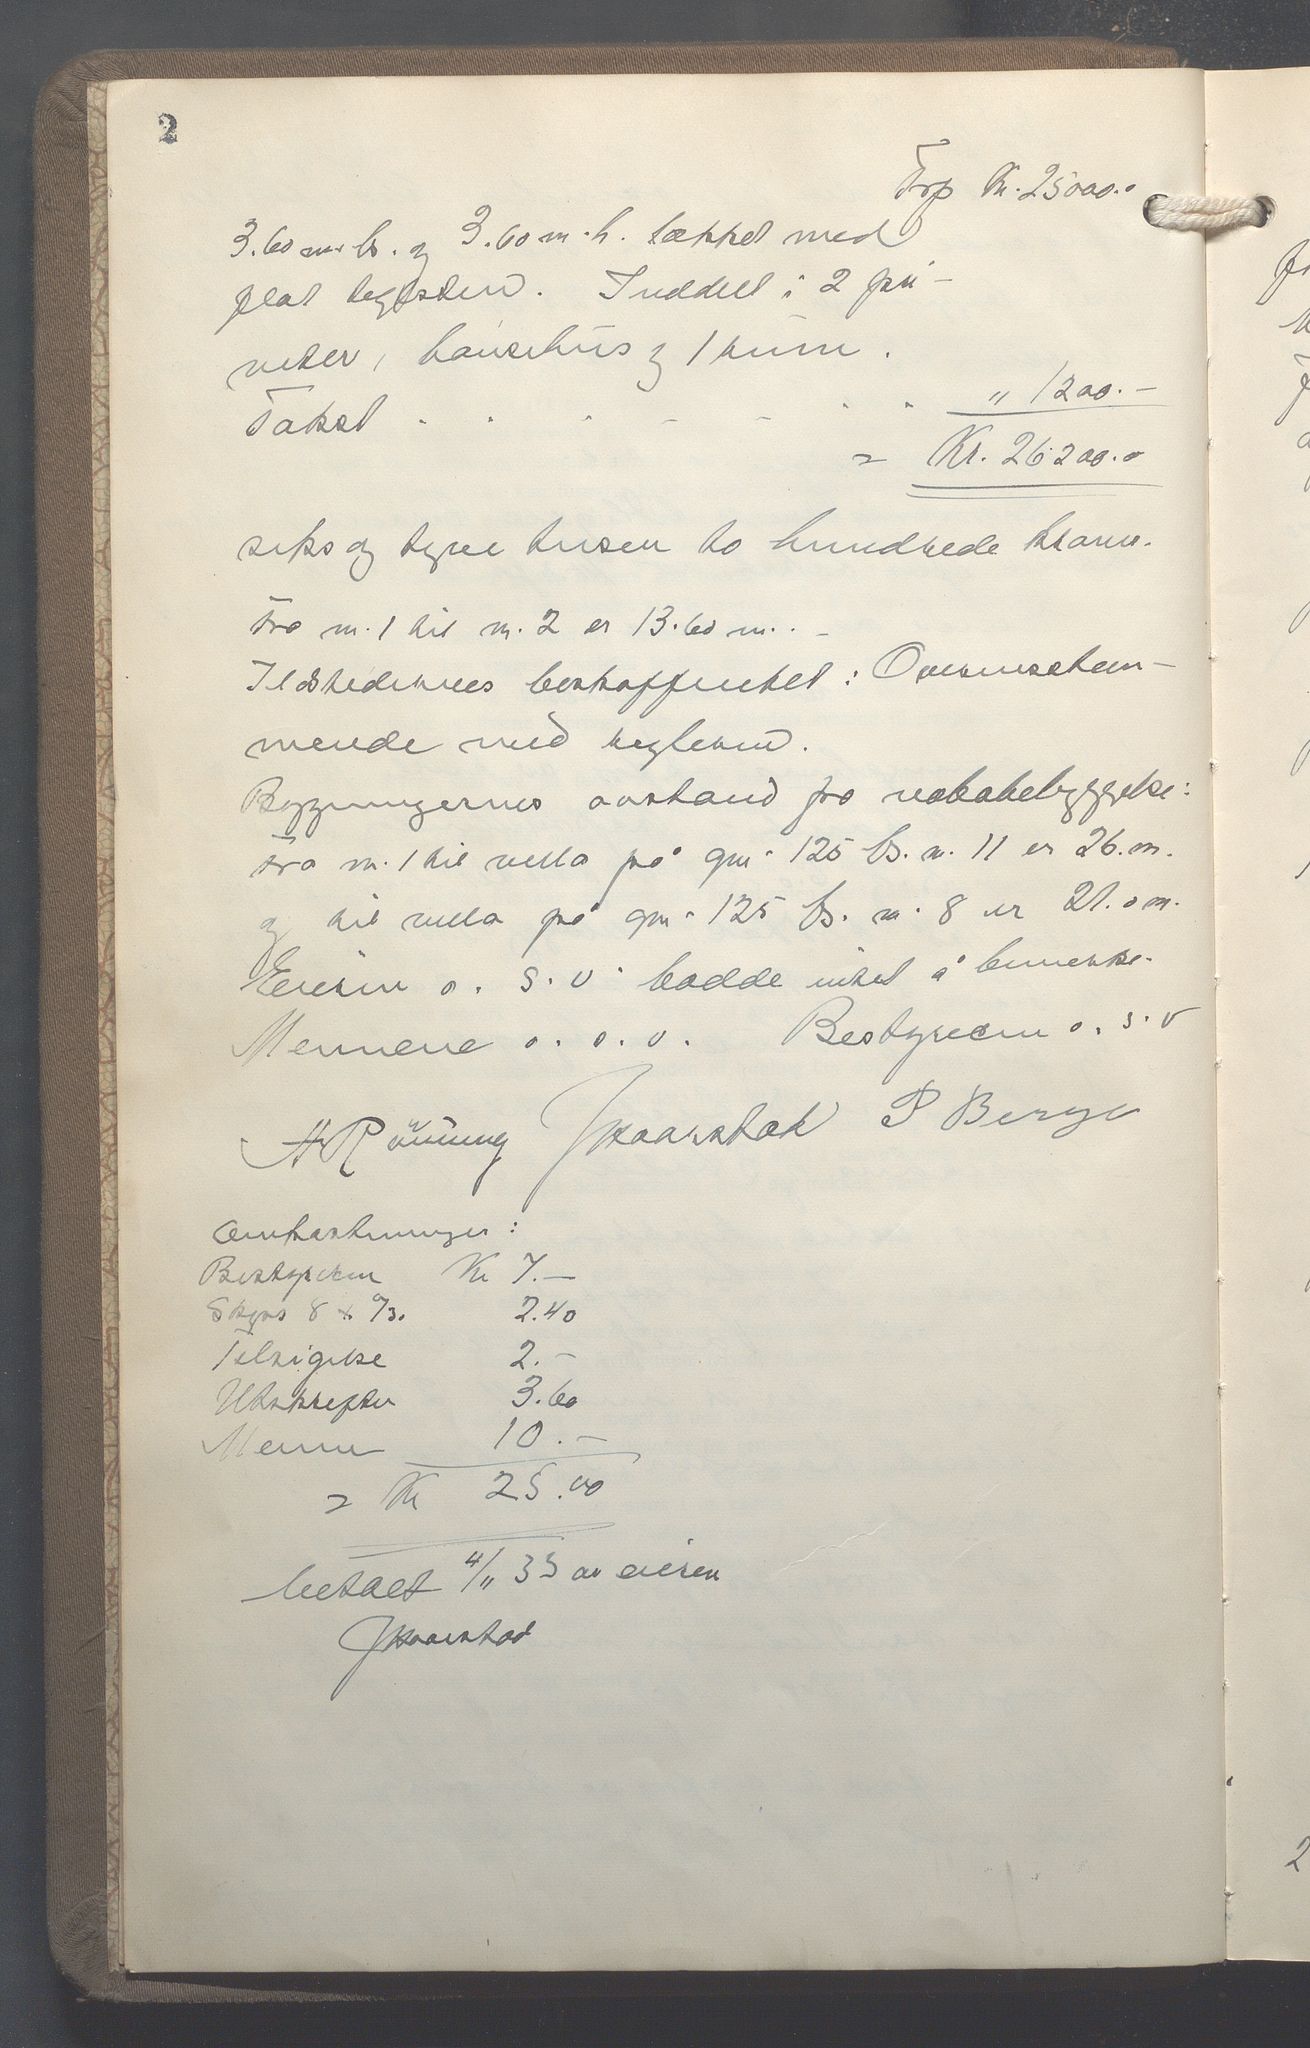 2
Trp Kr. 25000.0
3.60 m. b. og 3.60 m. h. tækket med
flat teglsten. Inddelt i 2 pri-
veter, hønsehus og 1 rum.
Takst . . . - - . . " 1200.-
= Kr. 26200.0
seks og tyve tusen to hundrede kroner.
Fra nr. 1 til nr. 2 er 13.60 m. -
Ildstedernes beskaffenhet: Overensstem-
mende med reglerne.
Bygningernes avstand fra nabobebyggelse:
Fra nr. 1 til villa på gnr. 125 b. nr. 11 er 26. m.
og til villa på gnr. 125 b. nr. 8 er 21.0 m.
Eieren o. s. v. hadde intet å bemerke.
Mennene o. s. v. Bestyreren o. s. v
A Rönning Skaarstad P Berge
Omkostninger:
Bestyreren Kr 7.-
Skyss 8 x 0/30 2.40
Tilsigelse 2.-
Utskrifter 3.60
Menn 10.-
= Kr 25.00
betalt 4/11 35 av eieren
Skaarstad
2